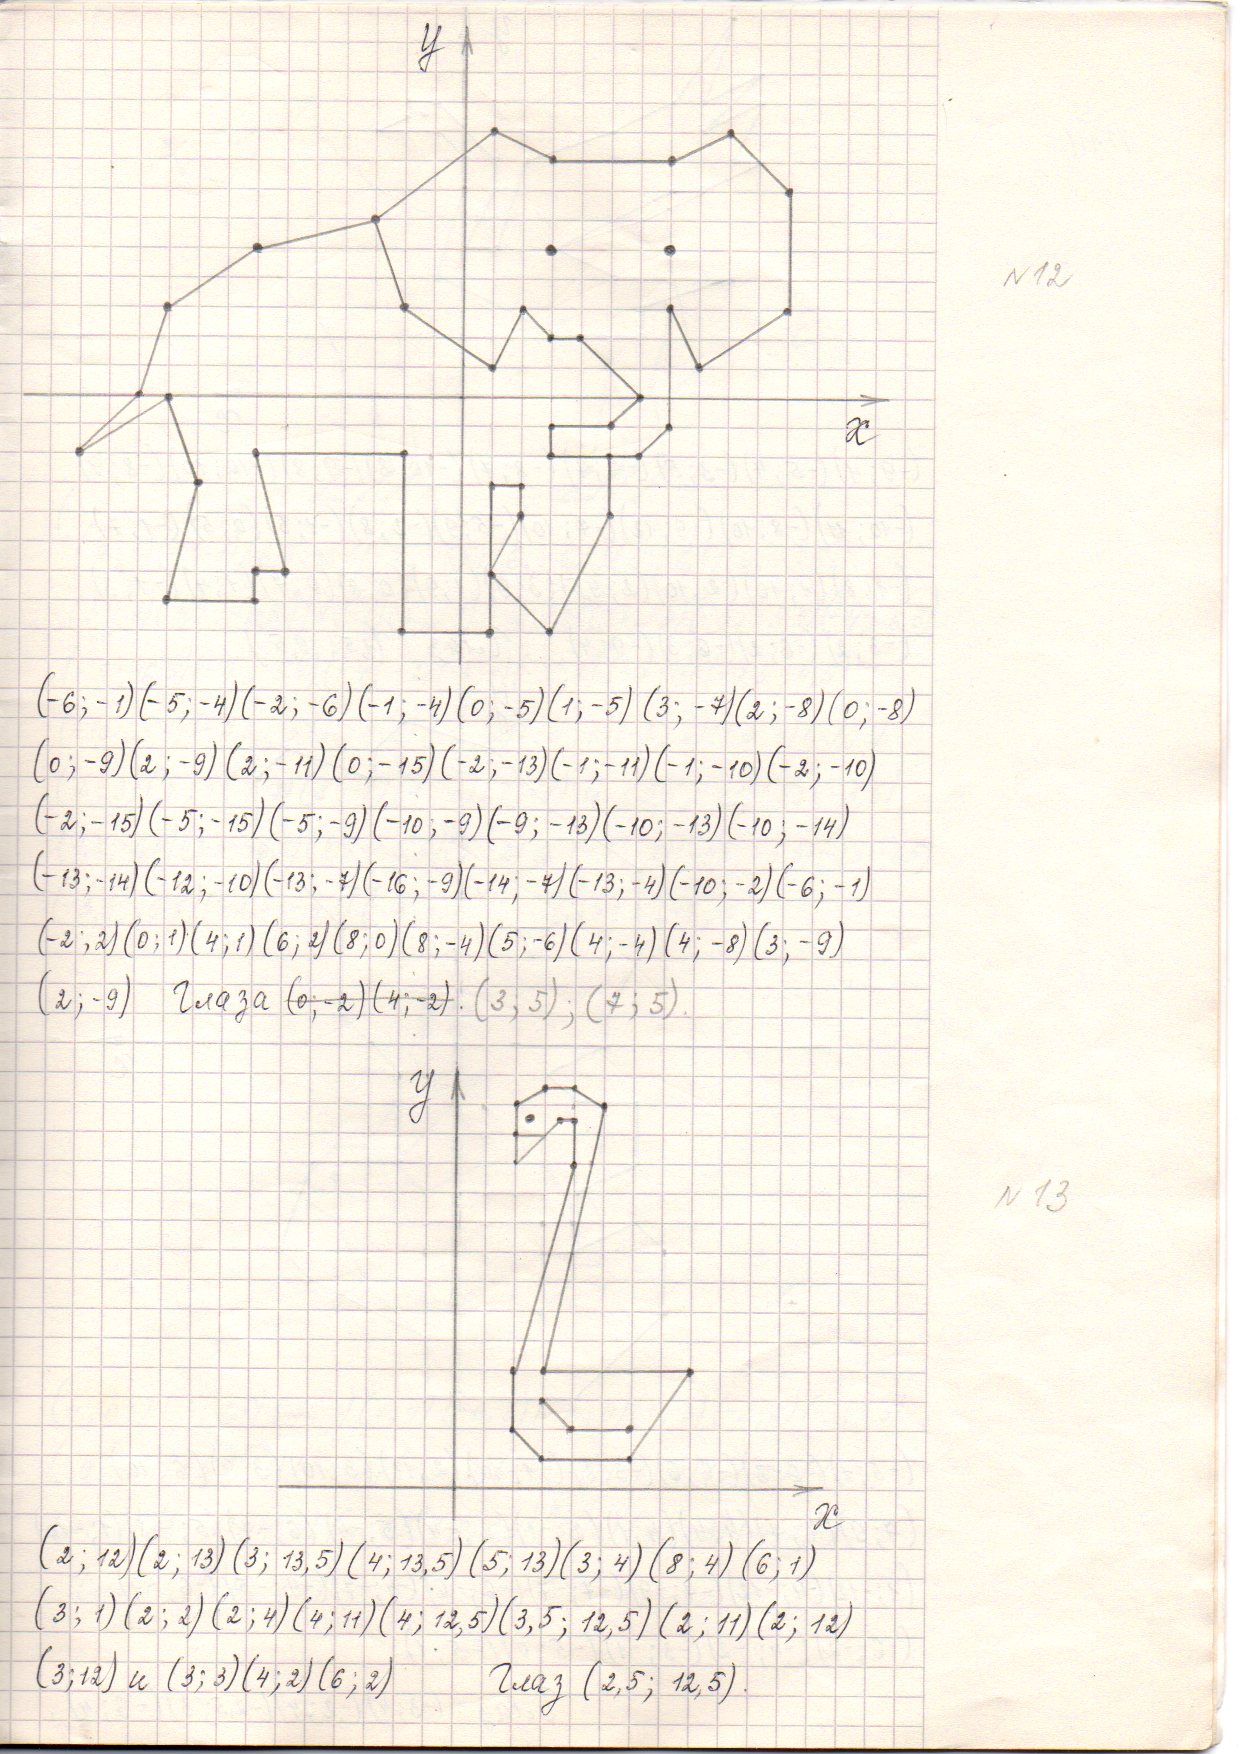 y
N12
x
(-6; -1) (-5; -4) (-2; -6) (-1; -4) (0; -5) (1; -5) (3; -7) (2; -8) (0; -8)
(0; -9) (2; -9) (2; -11) (0; -15) (-2; -13) (-1; -11) (-1; -10) (-2; -10)
(-2; -15) (-5; -15) (-5; -9) (-10; -9) (-9; -13) (-10; -13) (-10; -14)
(-13; -14) (-12; -10) (-13; -7) (-16; -9) (-14; -7) (-13; -4) (-10; -2) (-6; -1)
(-2; 2) (0; 1) (4; 1) (6; 2) (8; 0) (8; -4) (5; -6) (4; -4) (4; -8) (3; -9)
(2; -9) Глаза (0; -2) (4; -2). (3; 5); (7; 5).
y
N13
x
(2; 12) (2; 13) (3; 13,5) (4; 13,5) (5; 13) (3; 4) (8; 4) (6; 1)
(3; 1) (2; 2) (2; 4) (4; 11) (4; 12,5) (3,5; 12,5) (2; 11) (2; 12)
(3; 12) и (3; 3) (4; 2) (6; 2) Глаз (2,5; 12,5).